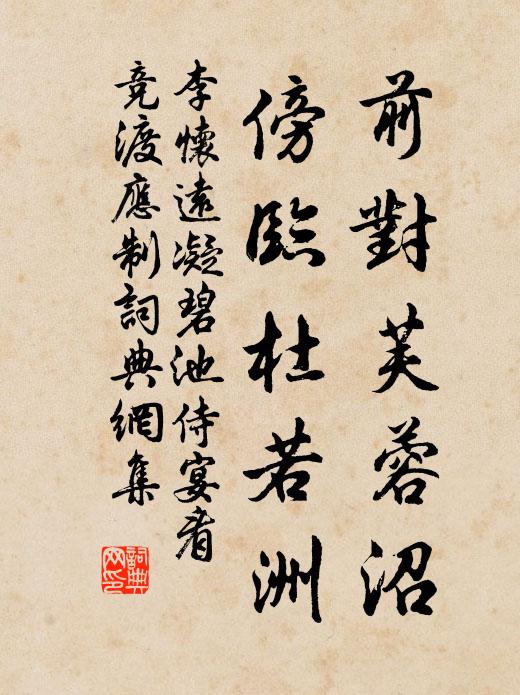 前對芙蓉沼
傍臨杜若洲
李懷遠凝碧池侍宴看
競渡應制詞典網集
詞典
網印